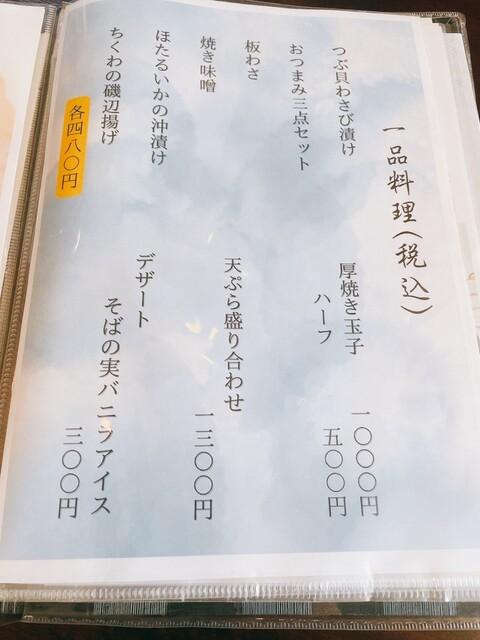 一品料理（税込）
つぶ貝わさび漬け
おつまみ三点セット
板わさ
焼き味噌
ほたるいかの沖漬け
ちくわの磯辺揚げ
各四八〇円
厚焼き玉子
一〇〇〇円
ハーフ
五〇〇円
天ぷら盛り合わせ
一三〇〇円
デザート
そばの実バニラアイス
三〇〇円